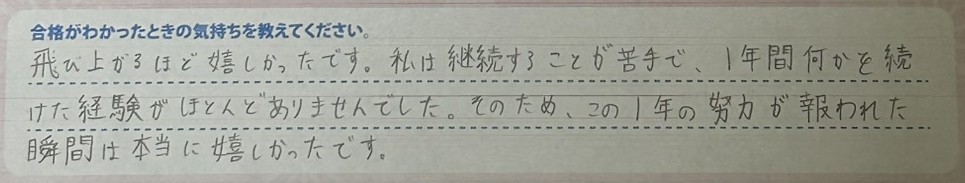 合格がわかったときの気持ちを教えてください。
飛び上がるほど嬉しかったです。私は継続することが苦手で、1年間何かを続
けた経験がほとんどありませんでした。そのため、この1年の努力が報われた
瞬間は本当に嬉しかったです。